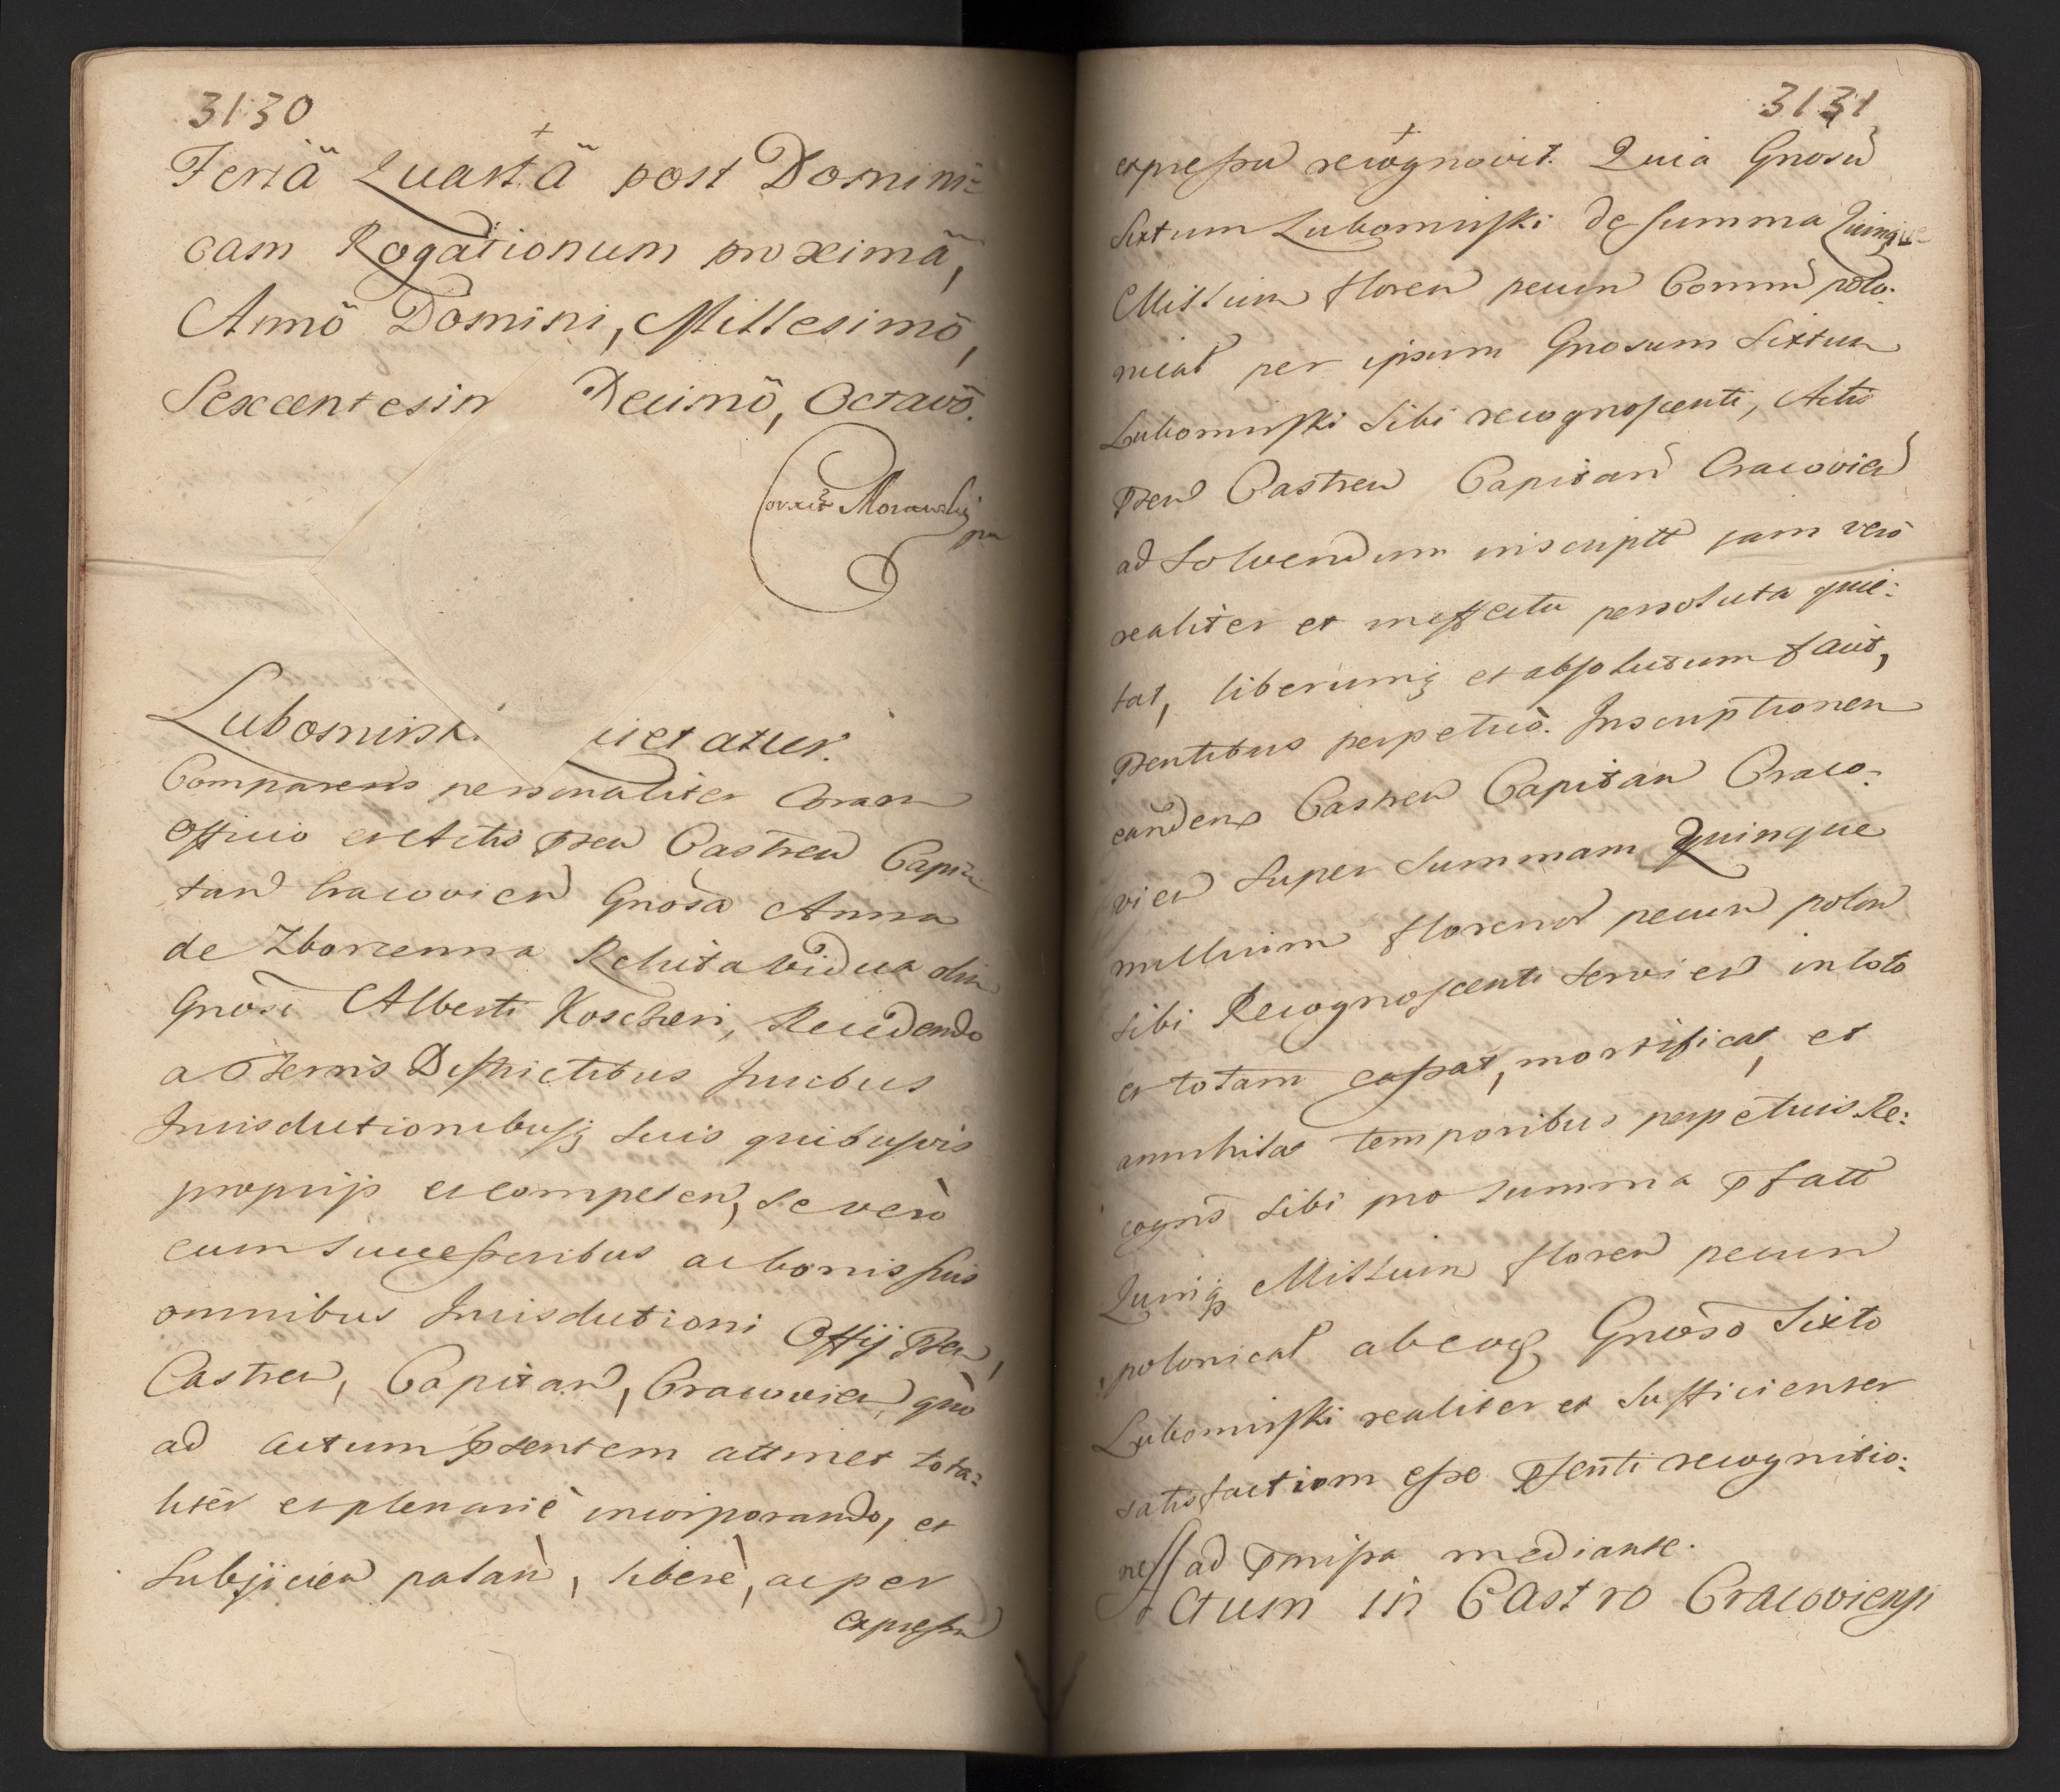 3130
Feriã Quartã post Domini=
cam Rogationum proximã,
Annõ Domini, Millesimõ,
Sexcentesim Decimõ, Octavõ.
Correxit Morawski
Lubomirsk uietatur.
Comparens personaliter Coram
Officio et Actis pñtñ Castreñ Capi=
tañ Cracovieñ Gñosa Anna
de Zborzenna vidua olim
Gñosi Alberti Koscheri, Recedendo
a Terris Districtibus Juribus
Jurisdictionibusq suis quibusvis
proprijs et competeñ, se verò
cum Successoribus ac bonis suis
omnibus Jurisdictioni Offij pñtñ,
Castreñ, Capitañ, Cracovieñ, quò
ad actum pñtentem attinet tota=
liter et plenariè incorporando, et
Subijcieñ palàm, liberè, ac per
expressũ
3131
expressũ recognovit. Quia Gñosũ
Sixtum Lubomirski de summa Quinque
Millium floreñ pecuñ Comm̃ polo:
nical per ipsum Gñosum Sixtum
Lubomirski Sibi recognoscenti, Actis
pñtñ Castreñ Capitañ Cracovieñ
ad Solvendum inscriptt jam verò
realiter et in effectu persoluta quie:
tat, liberumq et absolutum facit,
pñtentibus perpetuò. Inscriptionem
eandem Castreñ Capitañ Craco:
vieñ Super Summam Quinque
millium florenor pecuñ poloñ
sibi Recognoscenti servieñ in toto
et totam cassat, mortificat, et
annihilat temporibus perpetuis. Re:
cogñs sibi pro summa pfatt
Quinq Millium floreñ pecuñ
polonical ab eoq Gñoso Sixto
Lubomirski realiter et Sufficienter
satisfactiom esse pñtenti recognitio:
ne ad pmissa mediante.
Actum in Castro Cracoviensi